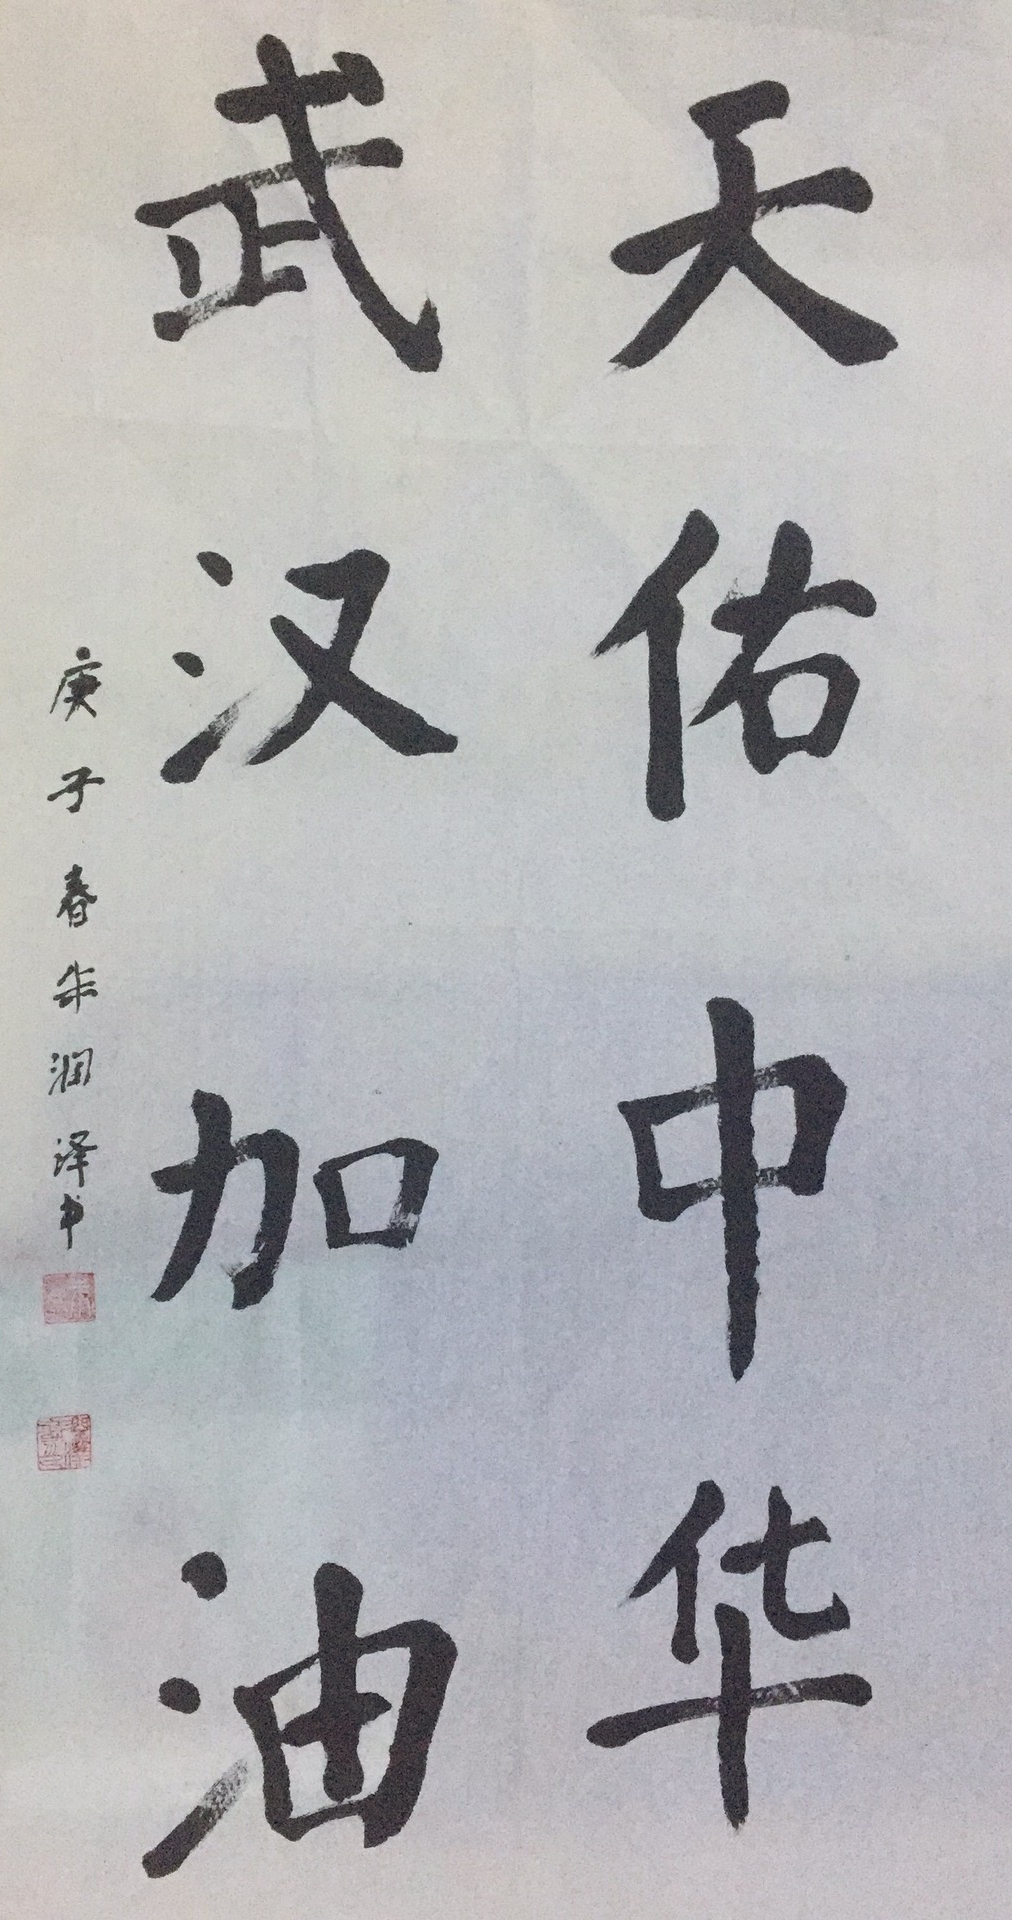 天佑中华
武汉加油
庚子春朱润泽书